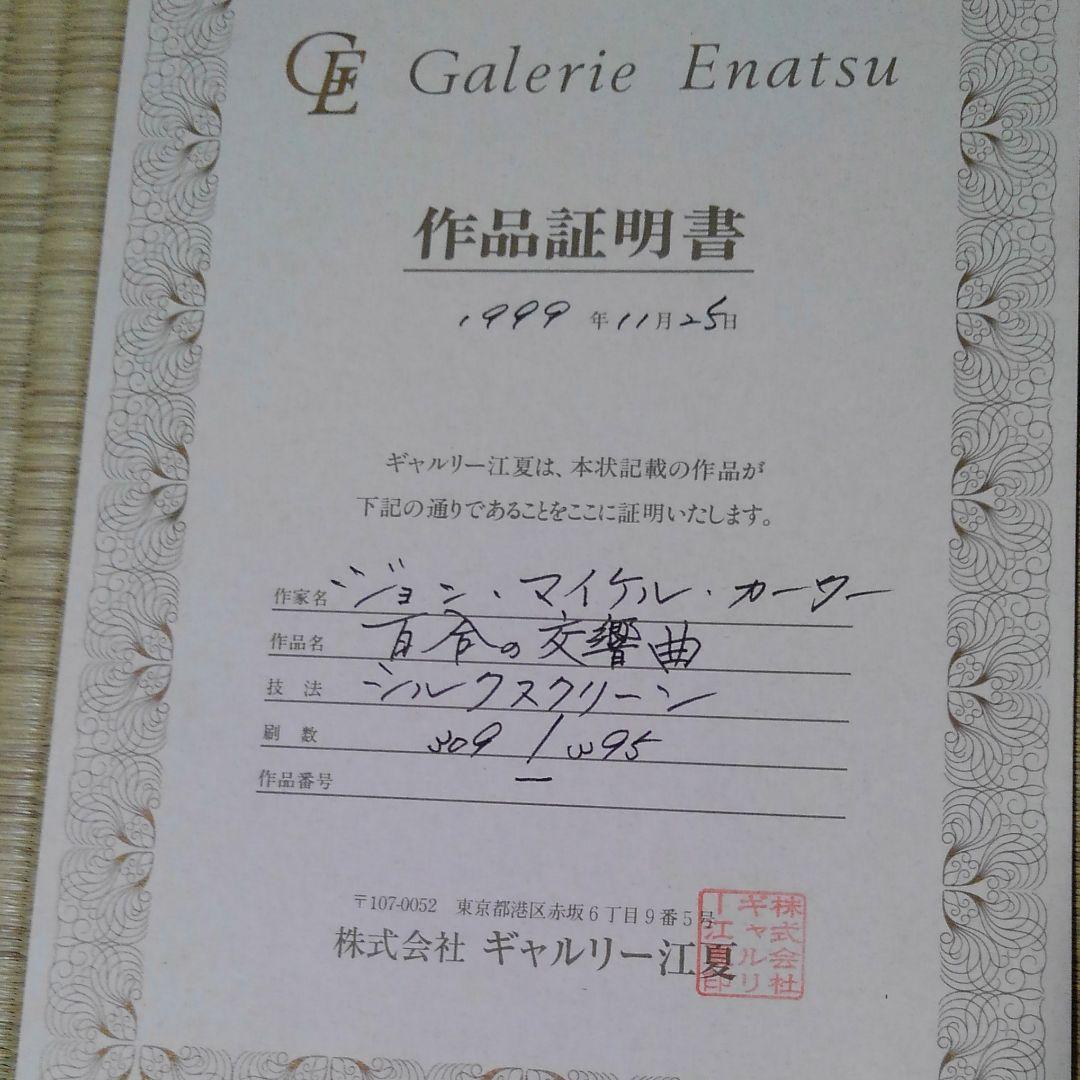 GE Galerie Enatsu
作品証明書
1999 年 11月 25日
ギャルリー江夏は、本状記載の作品が
下記の通りであることをここに証明いたします。
作家名 ジョン・マイケル・カーター
作品名 百合の交響曲
技 法 シルクスクリーン
刷 数 309 / 395
作品番号 —
〒107-0052 東京都港区赤坂6丁目9番5号
株式会社 ギャルリー江夏
株式会社
ギャルリ
ー江夏印